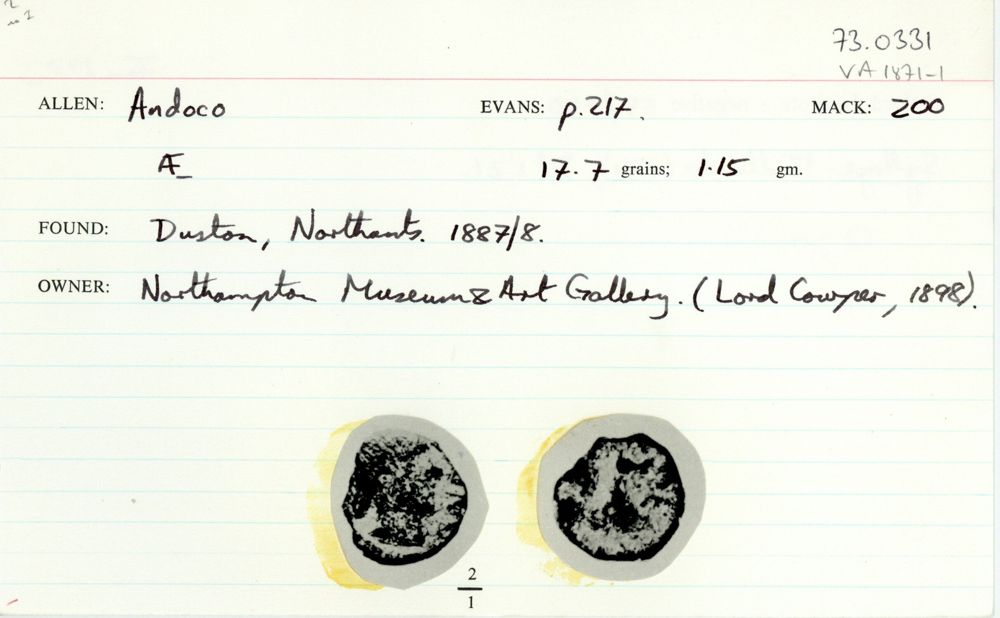 73.0331
VA 1871-1
ALLEN: Andoco EVANS: p.217. MACK: 200
Æ 17.7 grains; 1.15 gm.
FOUND: Duston, Northants. 1887/8.
OWNER: Northampton Museum & Art Gallery. (Lord Cowper, 1898).
2
1